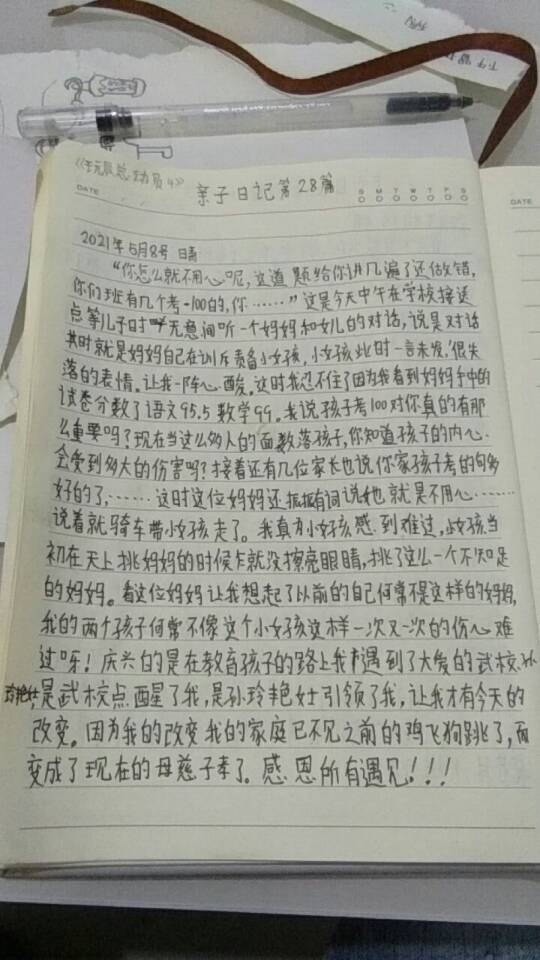 《玩具总动员4》
DATE
亲子日记第28篇
S M T W T F S
DATE
2021年5月8号 日晴
“你怎么就不用心呢,这道题给你讲几遍了还做错,
你们班有几个考100的,你……”这是今天中午在学校接送
点等儿子时无意间听一个妈妈和女儿的对话,说是对话
其时就是妈妈自己在训斥责备小女孩,小女孩此时一言未发,很失
落的表情。让我一阵心酸。这时我忍不住了因为我看到妈妈手中的
试卷分数了语文95.5数学99。我说孩子考100对你真的有那
么重要吗?现在当这么多人的面数落孩子,你知道孩子的内心
会受到多大的伤害吗?接着还有几位家长也说你家孩子考的够
好的了,……这时这位妈妈还振振有词说她就是不用心……
说着就骑车带小女孩走了。我真为小女孩感到难过,女孩当
初在天上挑妈妈的时候怎就没擦亮眼睛,挑了这么一个不知足
的妈妈。看这位妈妈让我想起了以前的自己何常不是这样的妈妈,
我的两个孩子何常不像这个小女孩这样一次又一次的伤心难
过呀!庆兴的是在教育孩子的路上我遇到了大爱的武校,孙
玲艳女士,是武校点醒了我,是孙玲艳女士引领了我,让我才有今天的
改变。因为我的改变我的家庭已不见之前的鸡飞狗跳了,而
变成了现在的母慈子孝了。感恩所有遇见!!!